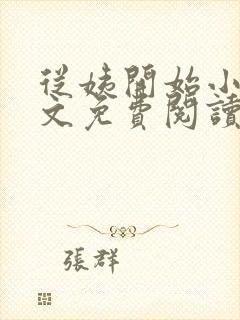 從姨開始小
文免費閱讀
張群